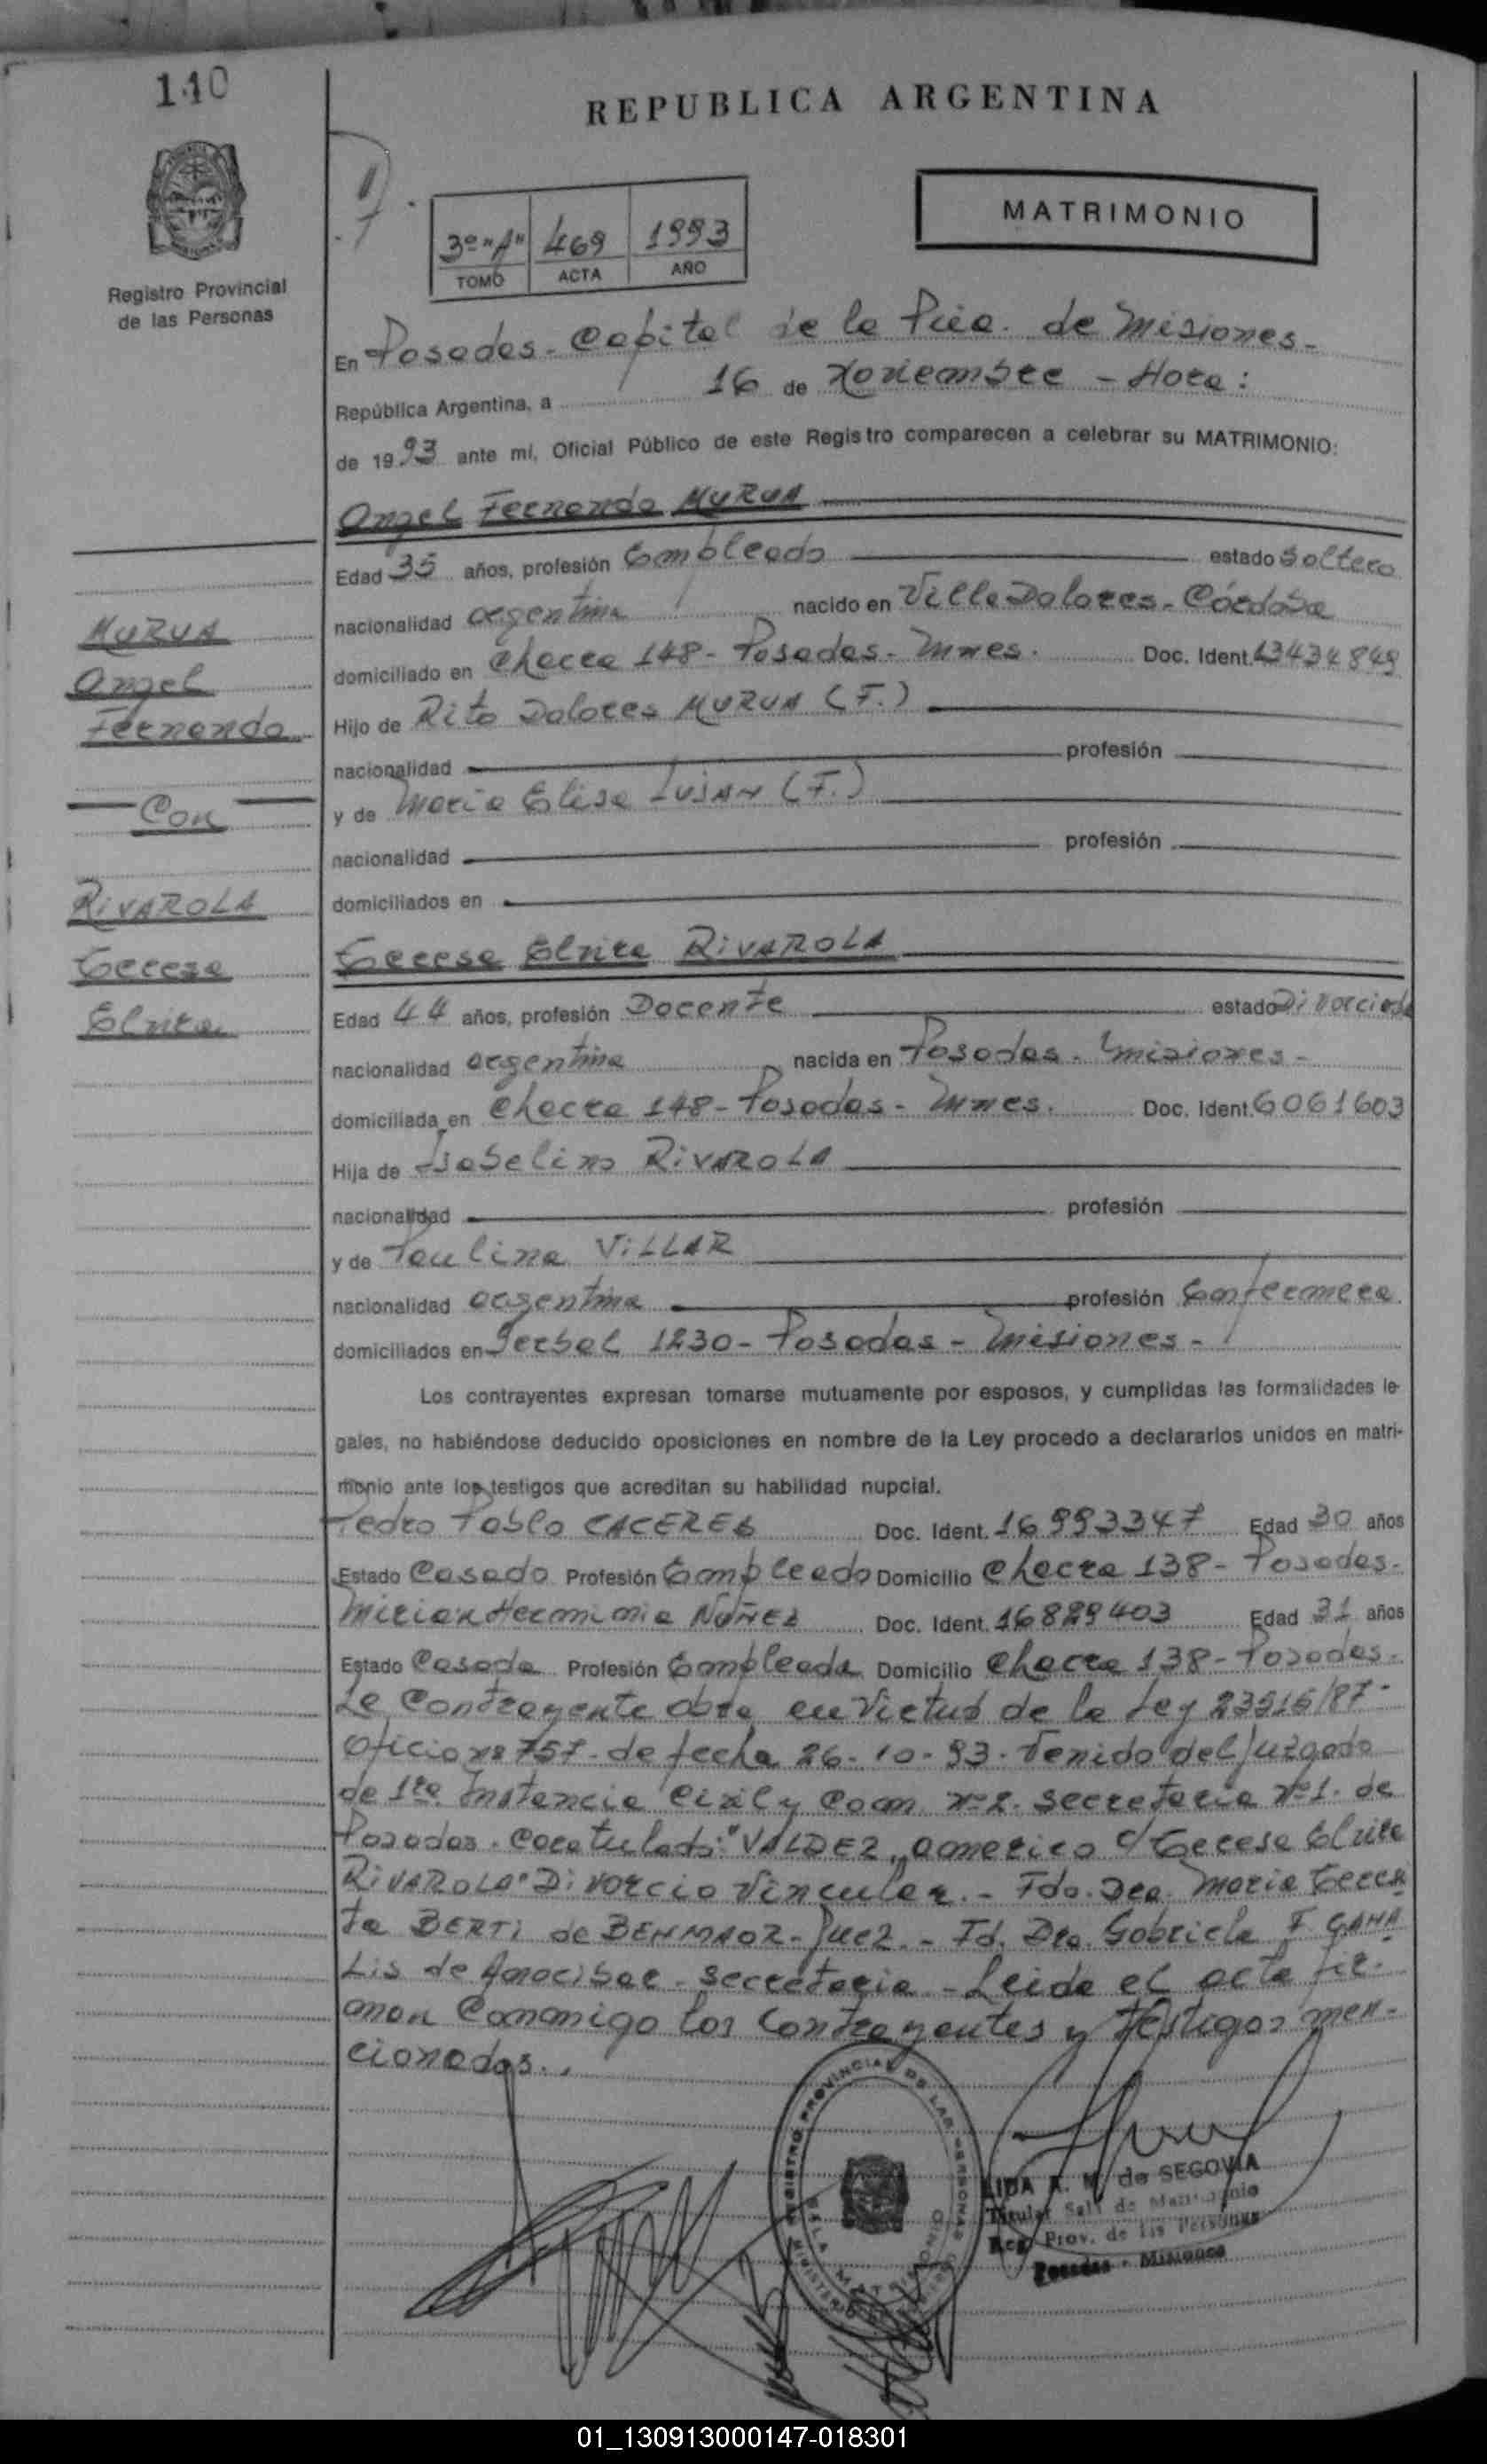 110
REPUBLICA ARGENTINA
Registro Provincial
de las Personas
3º "A" 469 1993
TOMO ACTA AÑO
MATRIMONIO
En Posadas - Capital de la Pcia. de Misiones -
República Argentina, a 16 de Noviembre - Hora:
de 1993 ante mí, Oficial Público de este Registro comparecen a celebrar su MATRIMONIO:
Angel Fernando MURUA
Edad 35 años, profesión Empleado estado Soltero
nacionalidad argentina nacido en Villa Dolores - Córdoba
domiciliado en Chacra 148 - Posadas - Mnes. Doc. Ident. 13434849
Hijo de Rito Dolores MURUA (F.)
nacionalidad profesión
y de Maria Elisa LUJAN (F.)
nacionalidad profesión
domiciliados en
MURUA
Angel
Fernando
Con
RIVAROLA
Teresa
Elvira
Teresa Elvira RIVAROLA
Edad 44 años, profesión Docente estado Divorciada
nacionalidad argentina nacida en Posadas - Misiones -
domiciliada en Chacra 148 - Posadas - Mnes. Doc. Ident. 6061603
Hija de Isabelino RIVAROLA
nacionalidad profesión
y de Paulina VILLAR
nacionalidad argentina profesión Enfermera
domiciliados en Yerbal 1230 - Posadas - Misiones -
Los contrayentes expresan tomarse mutuamente por esposos, y cumplidas las formalidades le-
gales, no habiéndose deducido oposiciones en nombre de la Ley procedo a declararlos unidos en matri-
monio ante los testigos que acreditan su habilidad nupcial.
Pedro Pablo CACERES Doc. Ident. 16993347 Edad 30 años
Estado Casado Profesión Empleado Domicilio Chacra 138 - Posadas.
Mirian Herminia NUÑEZ Doc. Ident. 16829403 Edad 31 años
Estado Casada Profesión Empleada Domicilio Chacra 138 - Posadas.
La Contrayente obra en virtud de la Ley 23515/87 -
Oficio nº 757 - de fecha 26-10-93. Venido del Juzgado
de 1ra. Instancia Civil y Com. nº 2. Secretaria nº 1. de
Posadas. Caratulado: "VALDEZ, Americo c/ Teresa Elvira
RIVAROLA" Divorcio Vincular. - Fdo. Dra. Maria Teresi
ta BERTI de BENMAOR - Juez. - Fd. Dra. Gabriela F. CANA
Lis de Amocibar - Secretaria - Leida el acta fir-
man Conmigo los Contrayentes y testigos men-
cionados.
REGISTRO PROVINCIAL DE LAS PERSONAS
LIDA A. M. de SEGOVIA
Titular Sala de Matrimonio
Reg. Prov. de las Personas
Posadas - Misiones
01_130913000147-018301